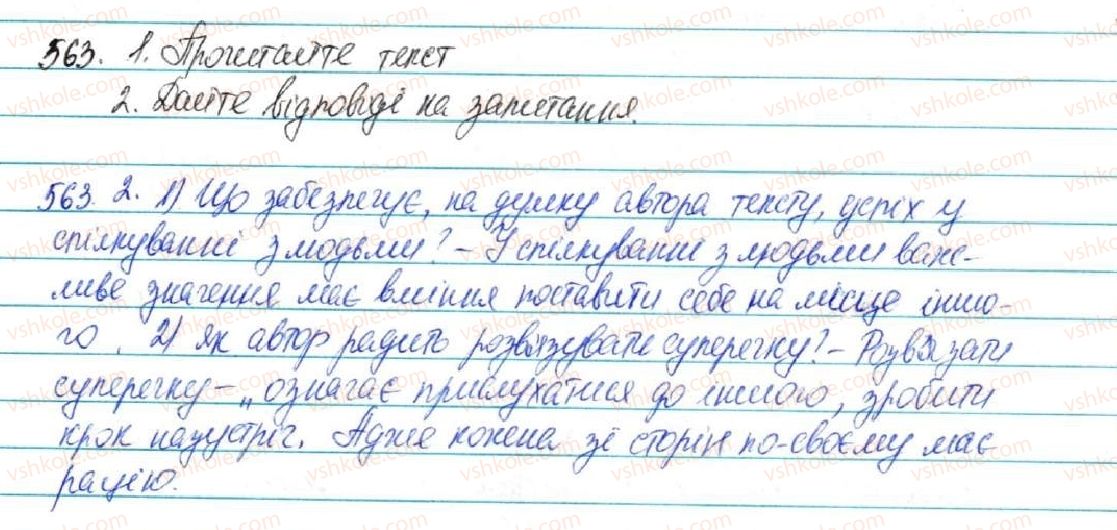 563. 1. Прочитайте текст
2. Дайте відповіді на запитання.
563. 2. 1) Що забезпечує, на думку автора тексту, успіх у
спілкуванні з людьми? – У спілкуванні з людьми важ-
ливе значення має вміння поставити себе на місце іншо-
го. 2) Як автор радить розв'язувати суперечку? – Розв'язати
суперечку – „означає прислухатися до іншого, зробити
крок назустріч. Адже кожна зі сторін по-своєму має
рацію.